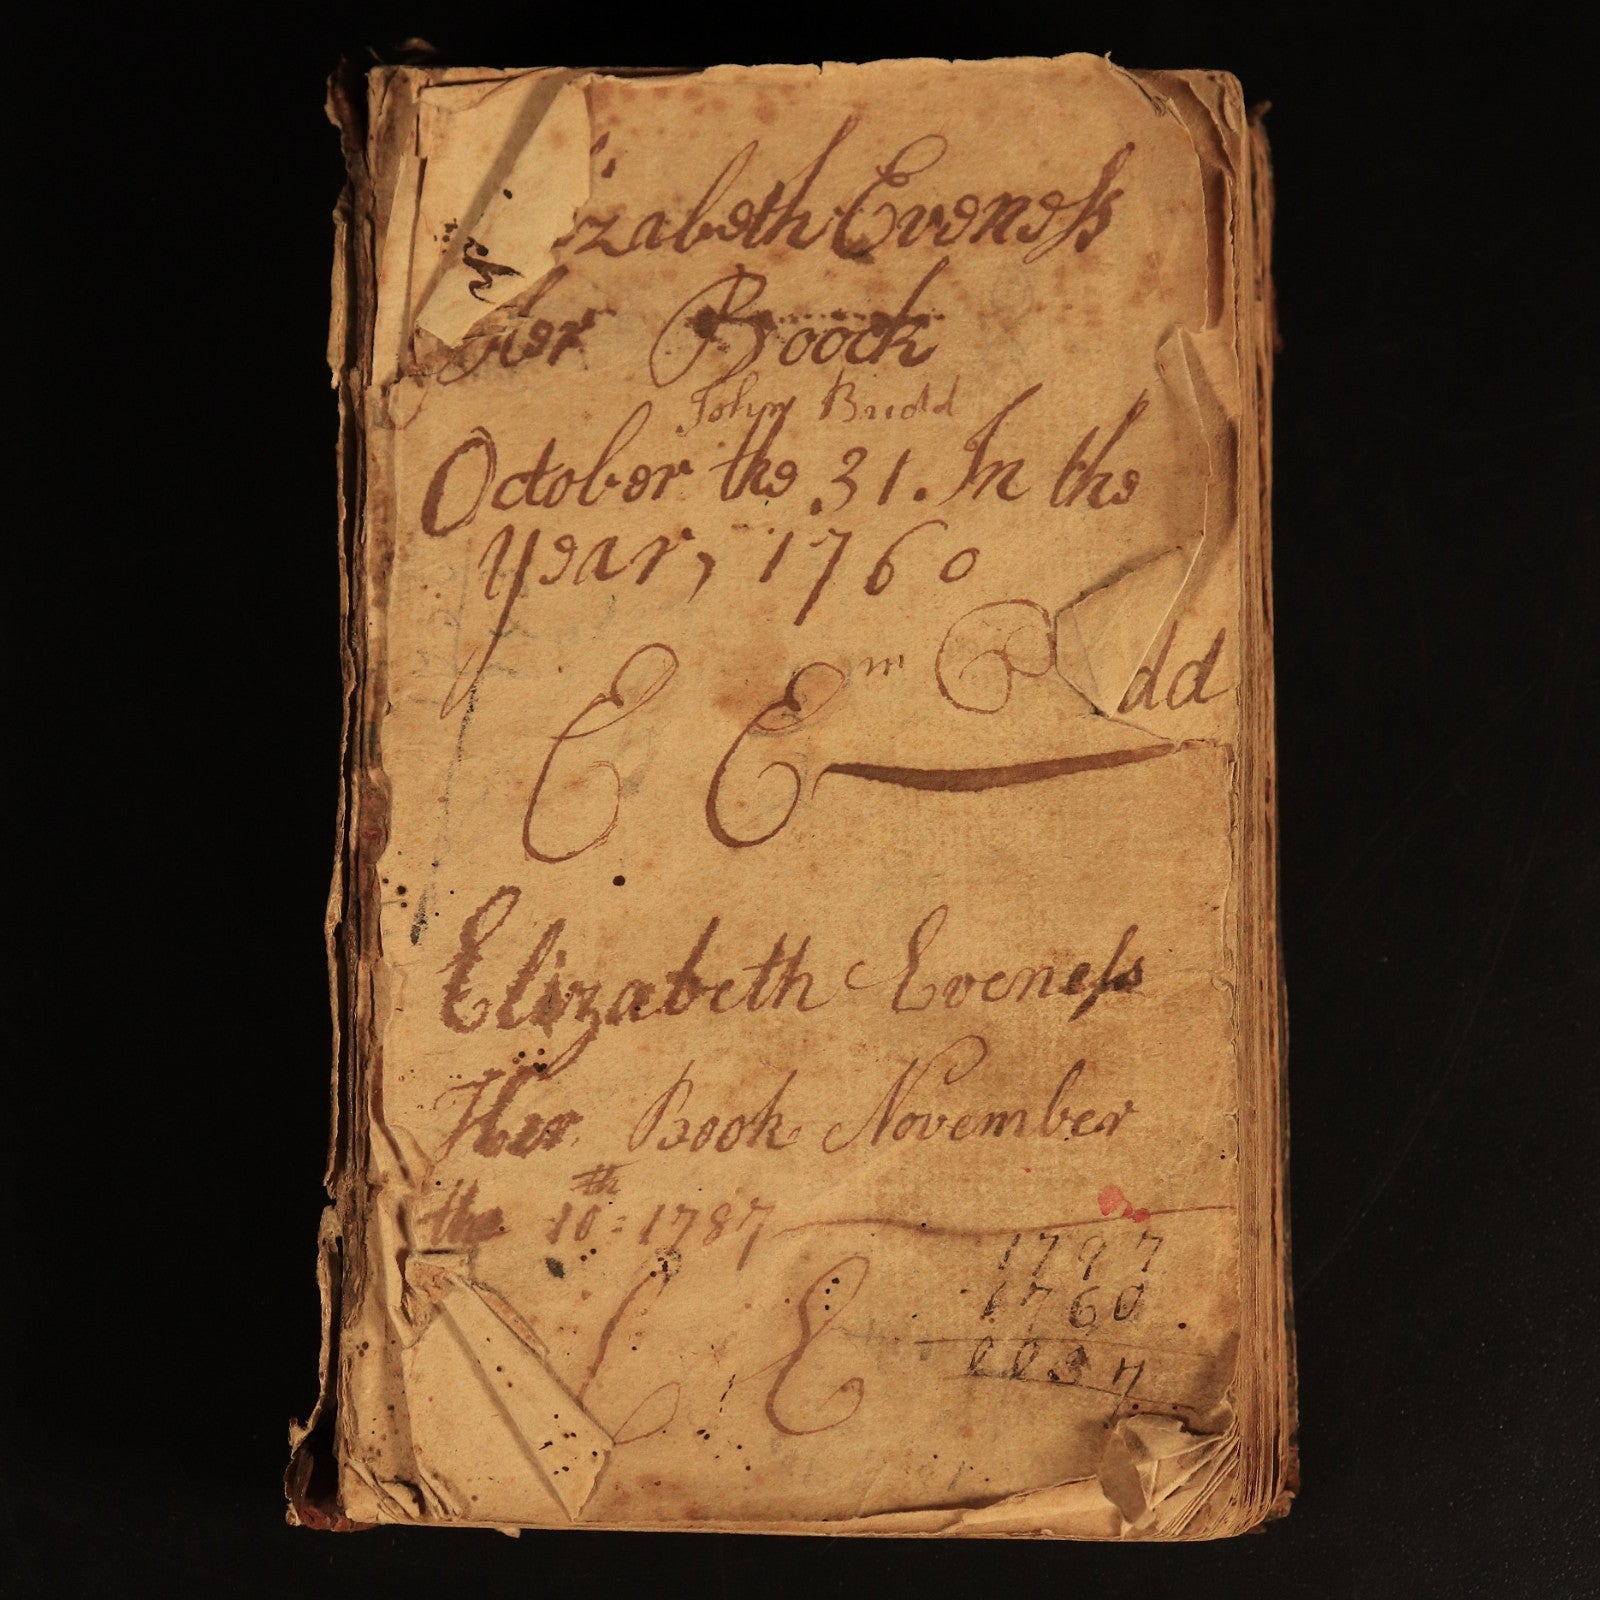 izabeth Eveneſs
Her Boock
John Budd
October the 31. In the
year, 1760
m
dd
E E
Elizabeth Eveneſs
Her Book November
the 10th: 1787
1797
1760
0037
E